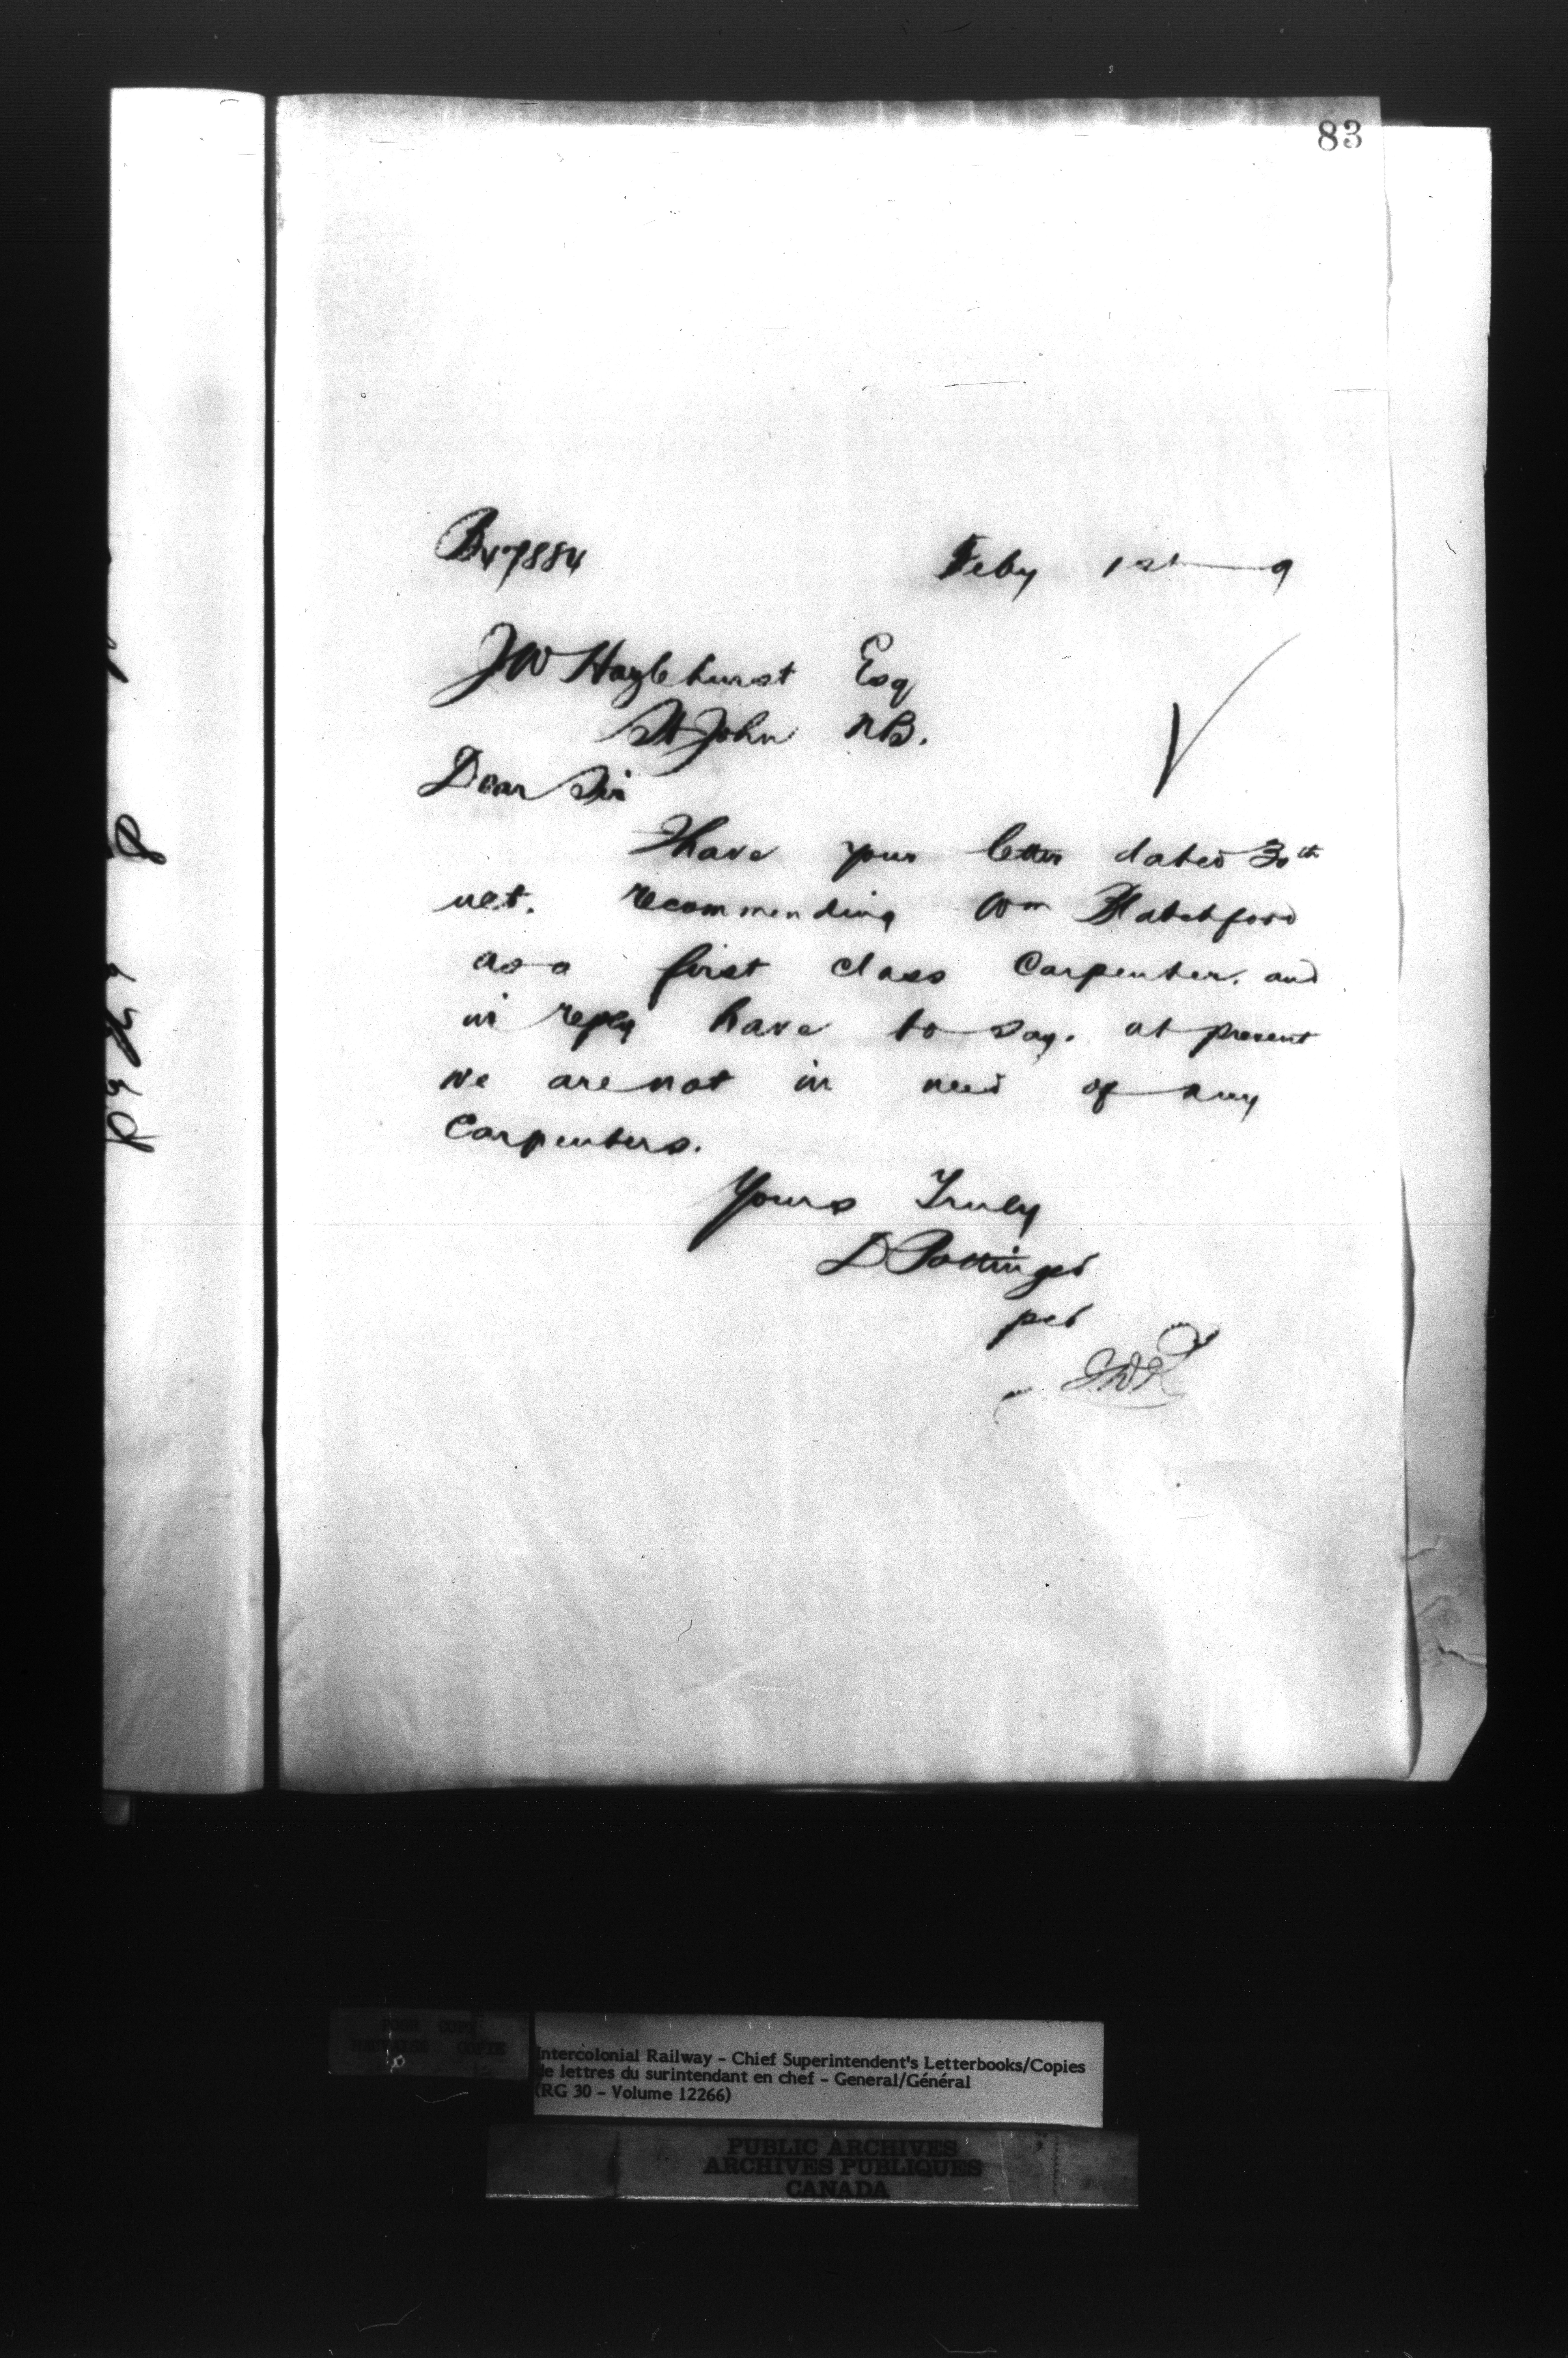 83
Feby 1st 9
JW Hazlehurst Esq
St John NB.
Dear Sir
I have your letter dated 30th
ult. recommending Wm Blatchford
as a first class Carpenter. and
in reply have to say. at present
we are not in need of any
Carpenters.
Yours Truly
D Pottinger
per
Intercolonial Railway - Chief Superintendent's Letterbooks/Copies
de lettres du surintendant en chef - General/Général
(RG 30 - Volume 12266)
PUBLIC ARCHIVES
ARCHIVES PUBLIQUES
CANADA